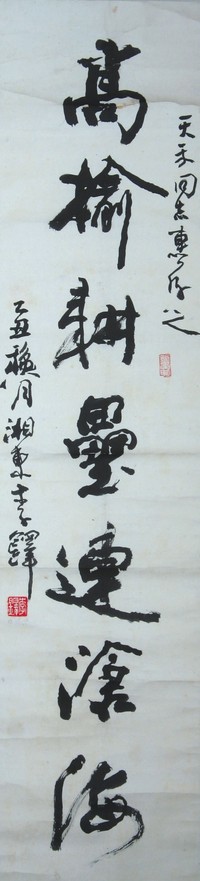 天禾同志惠存
高榆耕壘連滄海
乙丑月湘東李鐸